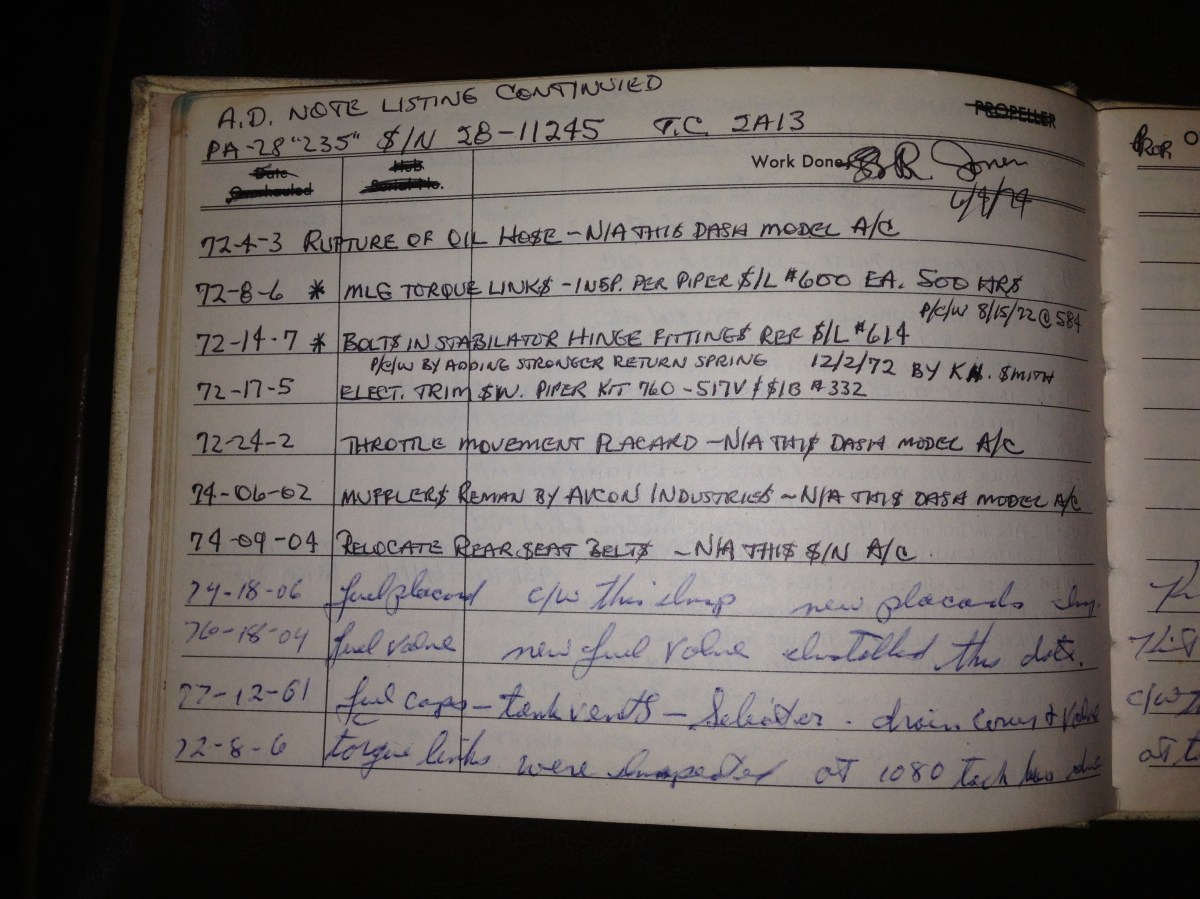 A.D. NOTE LISTING CONTINUIED
PROPELLER
PROP
PA-28 "235" S/N 28-11245 T.C. 2A13
Date Overhauled
Hub Serial No.
Work Done
R Jones
72-4-3 RUPTURE OF OIL HOSE - N/A THIS DASH MODEL A/C
72-8-6 * MLG TORQUE LINKS - INSP. PER PIPER S/L #600 EA. 500 HRS
P/C/W 8/15/72 @ 584
72-14-7 * BOLTS IN STABILATOR HINGE FITTINGS REF S/L #614
P/C/W BY ADDING STRONGER RETURN SPRING 12/2/72 BY K.H. SMITH
72-17-5 ELECT. TRIM SW. PIPER KIT 760-517V & S/B #332
72-24-2 THROTTLE MOVEMENT PLACARD - N/A THIS DASH MODEL A/C
74-06-02 MUFFLERS REMAN BY AVCON INDUSTRIES - N/A THIS DASH MODEL A/C
74-09-04 RELOCATE REAR SEAT BELTS - N/A THIS S/N A/C
74-18-06 fuel placard c/w this insp new placards
76-18-04 fuel valve new fuel valve installed this date.
77-12-01 fuel caps - tank vents - Selector - drain cover & Valve
c/w
72-8-6 torque links were inspected at 1080 tach
at